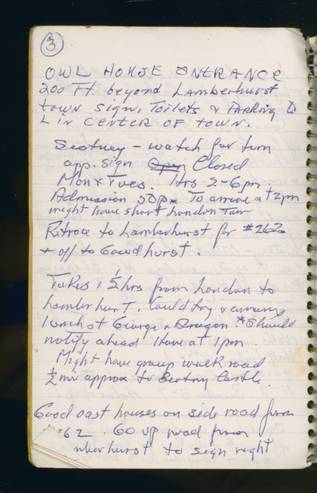 3
OWL HOUSE ENTRANCE
200 Ft beyond Lamberhurst
town sign. Toilets & Parking
L in CENTER OF TOWN.
Scotney - watch for turn
app. sign Closed
Mon & Tues. Hrs 2-6pm
Admission 50p. To arrive at 2pm
might have short London Tour
Retrace to Lamberhurst for #262
& off to Goudhurst.
Takes 1 ½ hrs from London to
Lamberhurst. Could try & arrange
lunch at George & Dragon. *Should
notify ahead. Have at 1pm
Might have group walk road
½ mi approx to Scotney Castle.
Good oast houses on side road from
262 Go up road from
Lamberhurst to sign right